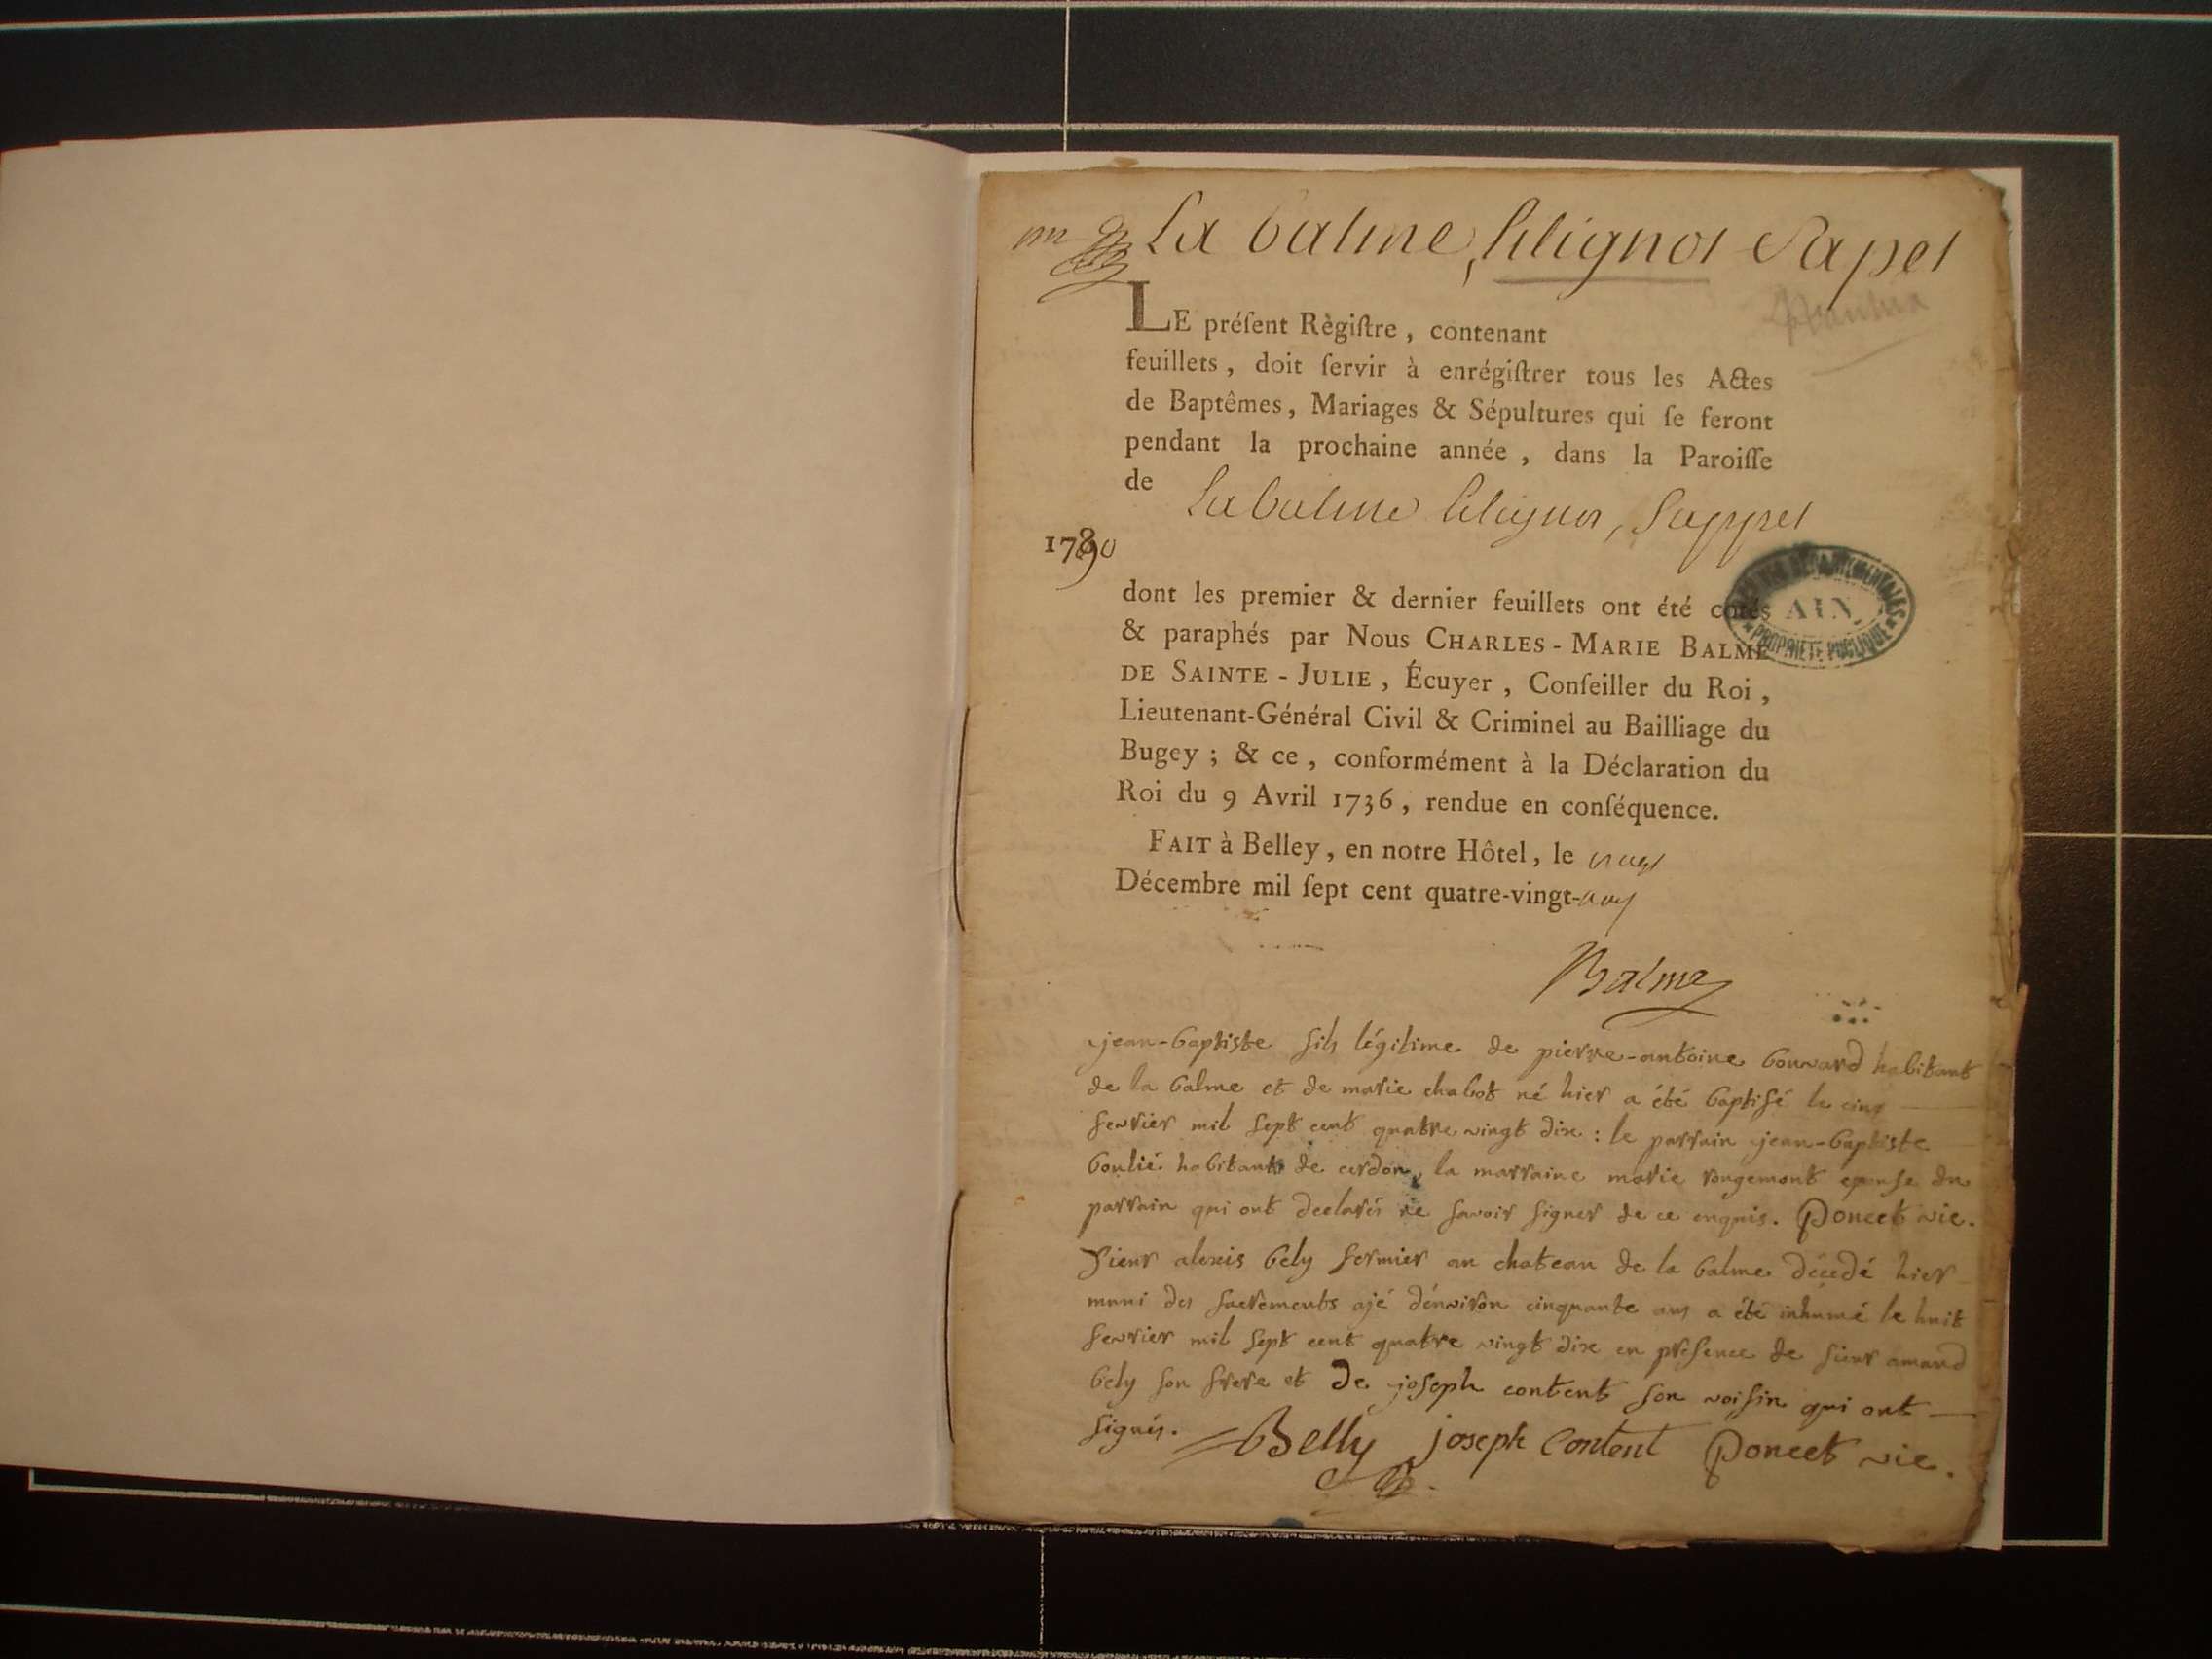 La balme, lilignot Sapel
LE préſent Règiſtre, contenant
feuillets, doit ſervir à enrégiſtrer tous les Actes
de Baptêmes, Mariages & Sépultures qui ſe feront
pendant la prochaine année, dans la Paroiſſe
de
La balme lilignot, Sappel
1790
dont les premier & dernier feuillets ont été cotés
& paraphés par Nous CHARLES-MARIE BALME
DE SAINTE-JULIE, Écuyer, Conſeiller du Roi,
Lieutenant-Général Civil & Criminel au Bailliage du
Bugey; & ce, conformément à la Déclaration du
Roi du 9 Avril 1736, rendue en conſéquence.
FAIT à Belley, en notre Hôtel, le vingt
Décembre mil ſept cent quatre-vingt-neuf
Balme
ARCHIVES DÉPARTEMENTALES
AIN
PROPRIÉTÉ PUBLIQUE
jean-baptiste fils légitime de pierre-antoine bouvard habitant
de la balme et de marie chabot né hier a été baptisé le cinq
fevrier mil sept cent quatre vingt dix : le parrain jean-baptiste
boulié habitants de cerdon, la marraine marie rougemont epouse du
parrain qui ont declarés ne savoir signer de ce enquis. Poncet vic.
Sieur alexis bely fermier au chateau de la balme décedé hier
muni des sacrements ajé dénviron cinquante ans a été inhumé le huit
fevrier mil sept cent quatre vingt dix en presence de sieur amand
bely son frere et de joseph content son voisin qui ont
signés. Belly joseph Content Poncet vic.